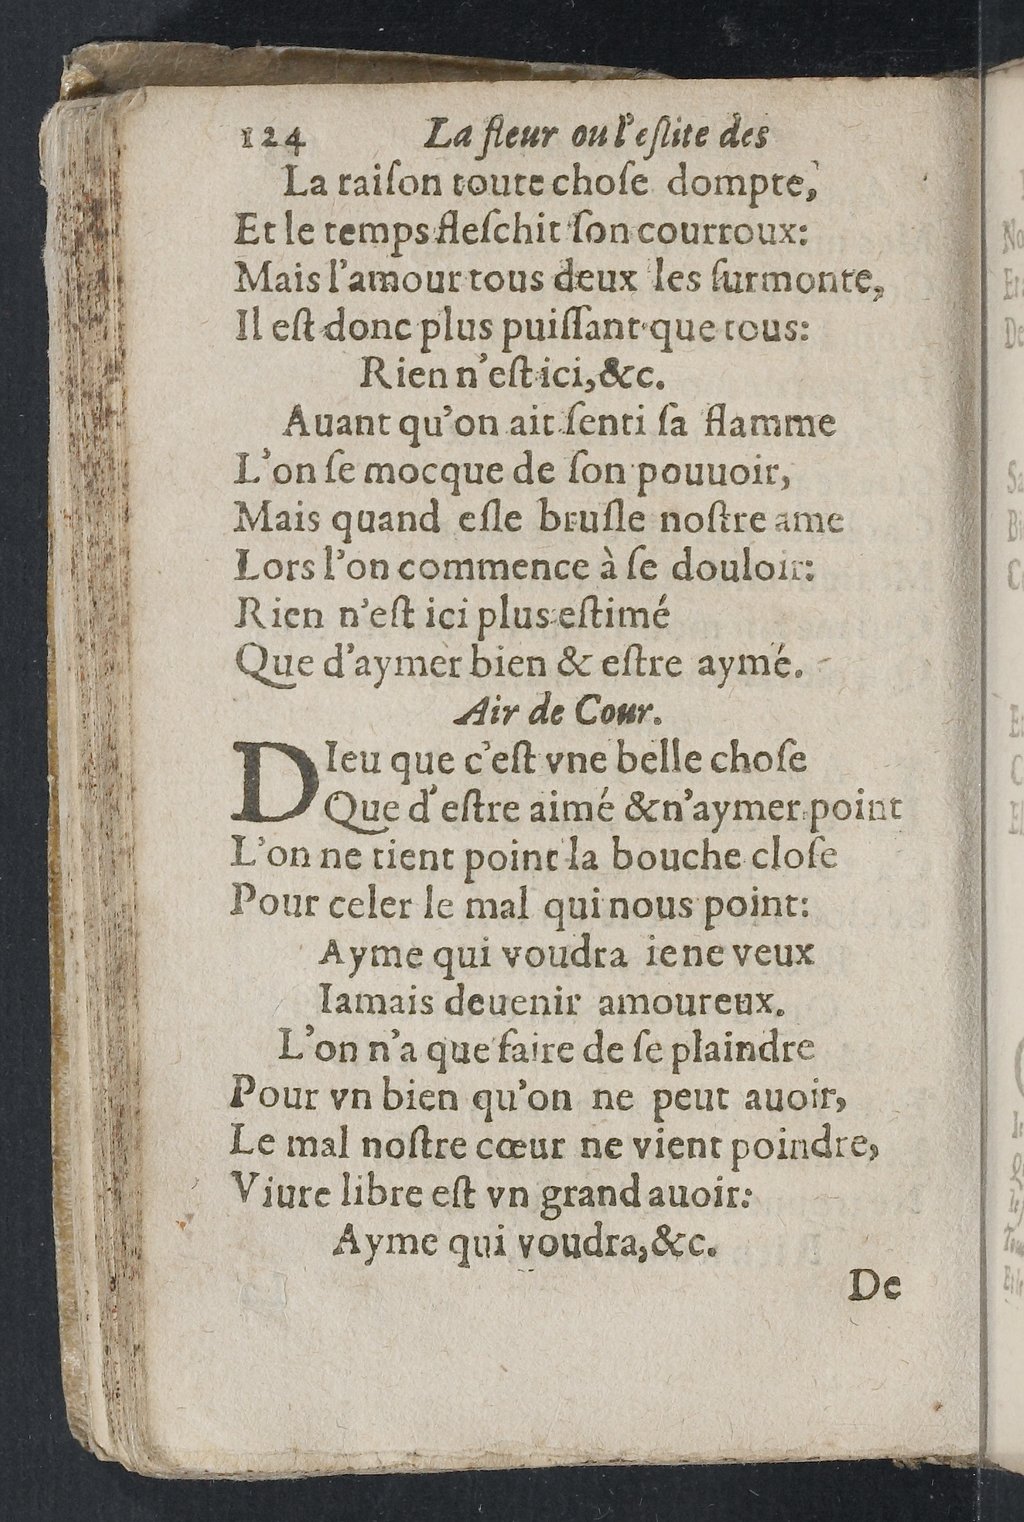 124 La fleur ou l'eslite des
La raiſon toute choſe dompte,
Et le temps fleſchit ſon courroux:
Mais l'amour tous deux les ſurmonte,
Il eſt donc plus puiſſant que tous:
Rien n'eſt ici, &c.
Auant qu'on ait ſenti ſa flamme
L'on ſe mocque de ſon pouuoir,
Mais quand eſle bruſle noſtre ame
Lors l'on commence à ſe douloir:
Rien n'eſt ici plus eſtimé
Que d'aymer bien & eſtre aymé.
Air de Cour.
DIeu que c'eſt vne belle choſe
Que d'eſtre aimé & n'aymer point
L'on ne tient point la bouche cloſe
Pour celer le mal qui nous point:
Ayme qui voudra ie ne veux
Iamais deuenir amoureux.
L'on n'a que faire de ſe plaindre
Pour vn bien qu'on ne peut auoir,
Le mal noſtre cœur ne vient poindre,
Viure libre eſt vn grand auoir:
Ayme qui voudra, &c.
De